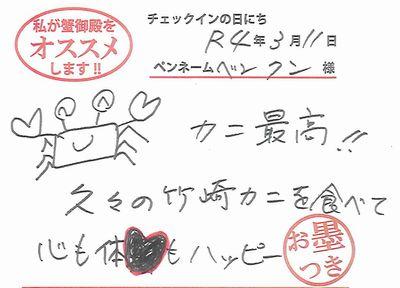 私が蟹御殿を
オススメ
します!!
チェックインの日にち
R4年3月11日
ペンネーム ベンクン 様
カニ最高!!
久々の竹崎カニを食べて
心も体もハッピー
お墨
つき